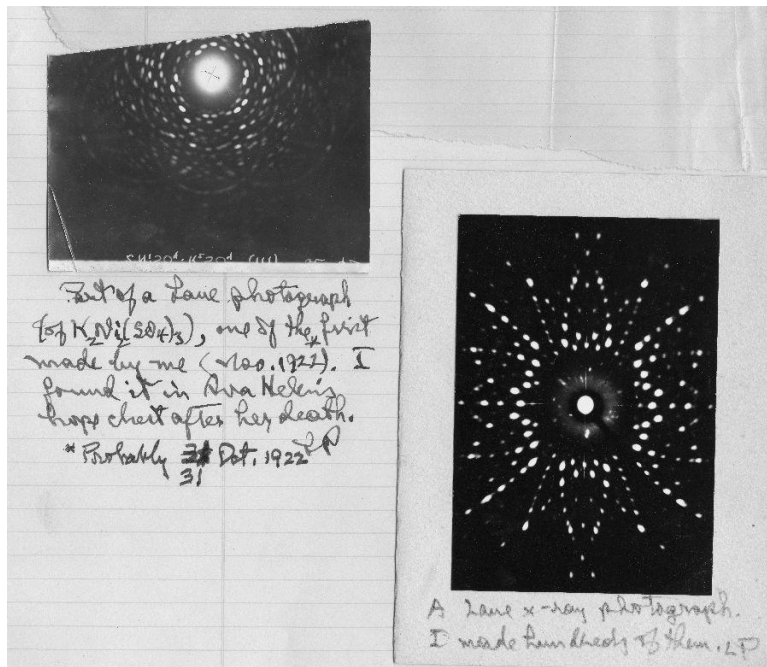 Part of a Laue photograph
(of K₂Ni₂(SO₄)₃), one of the* first
made by me (Nov. 1922). I
found it in Ava Helen's
hope chest after her death.
LP
* Probably 31 Oct. 1922
A Laue x-ray photograph.
I made hundreds of them. LP